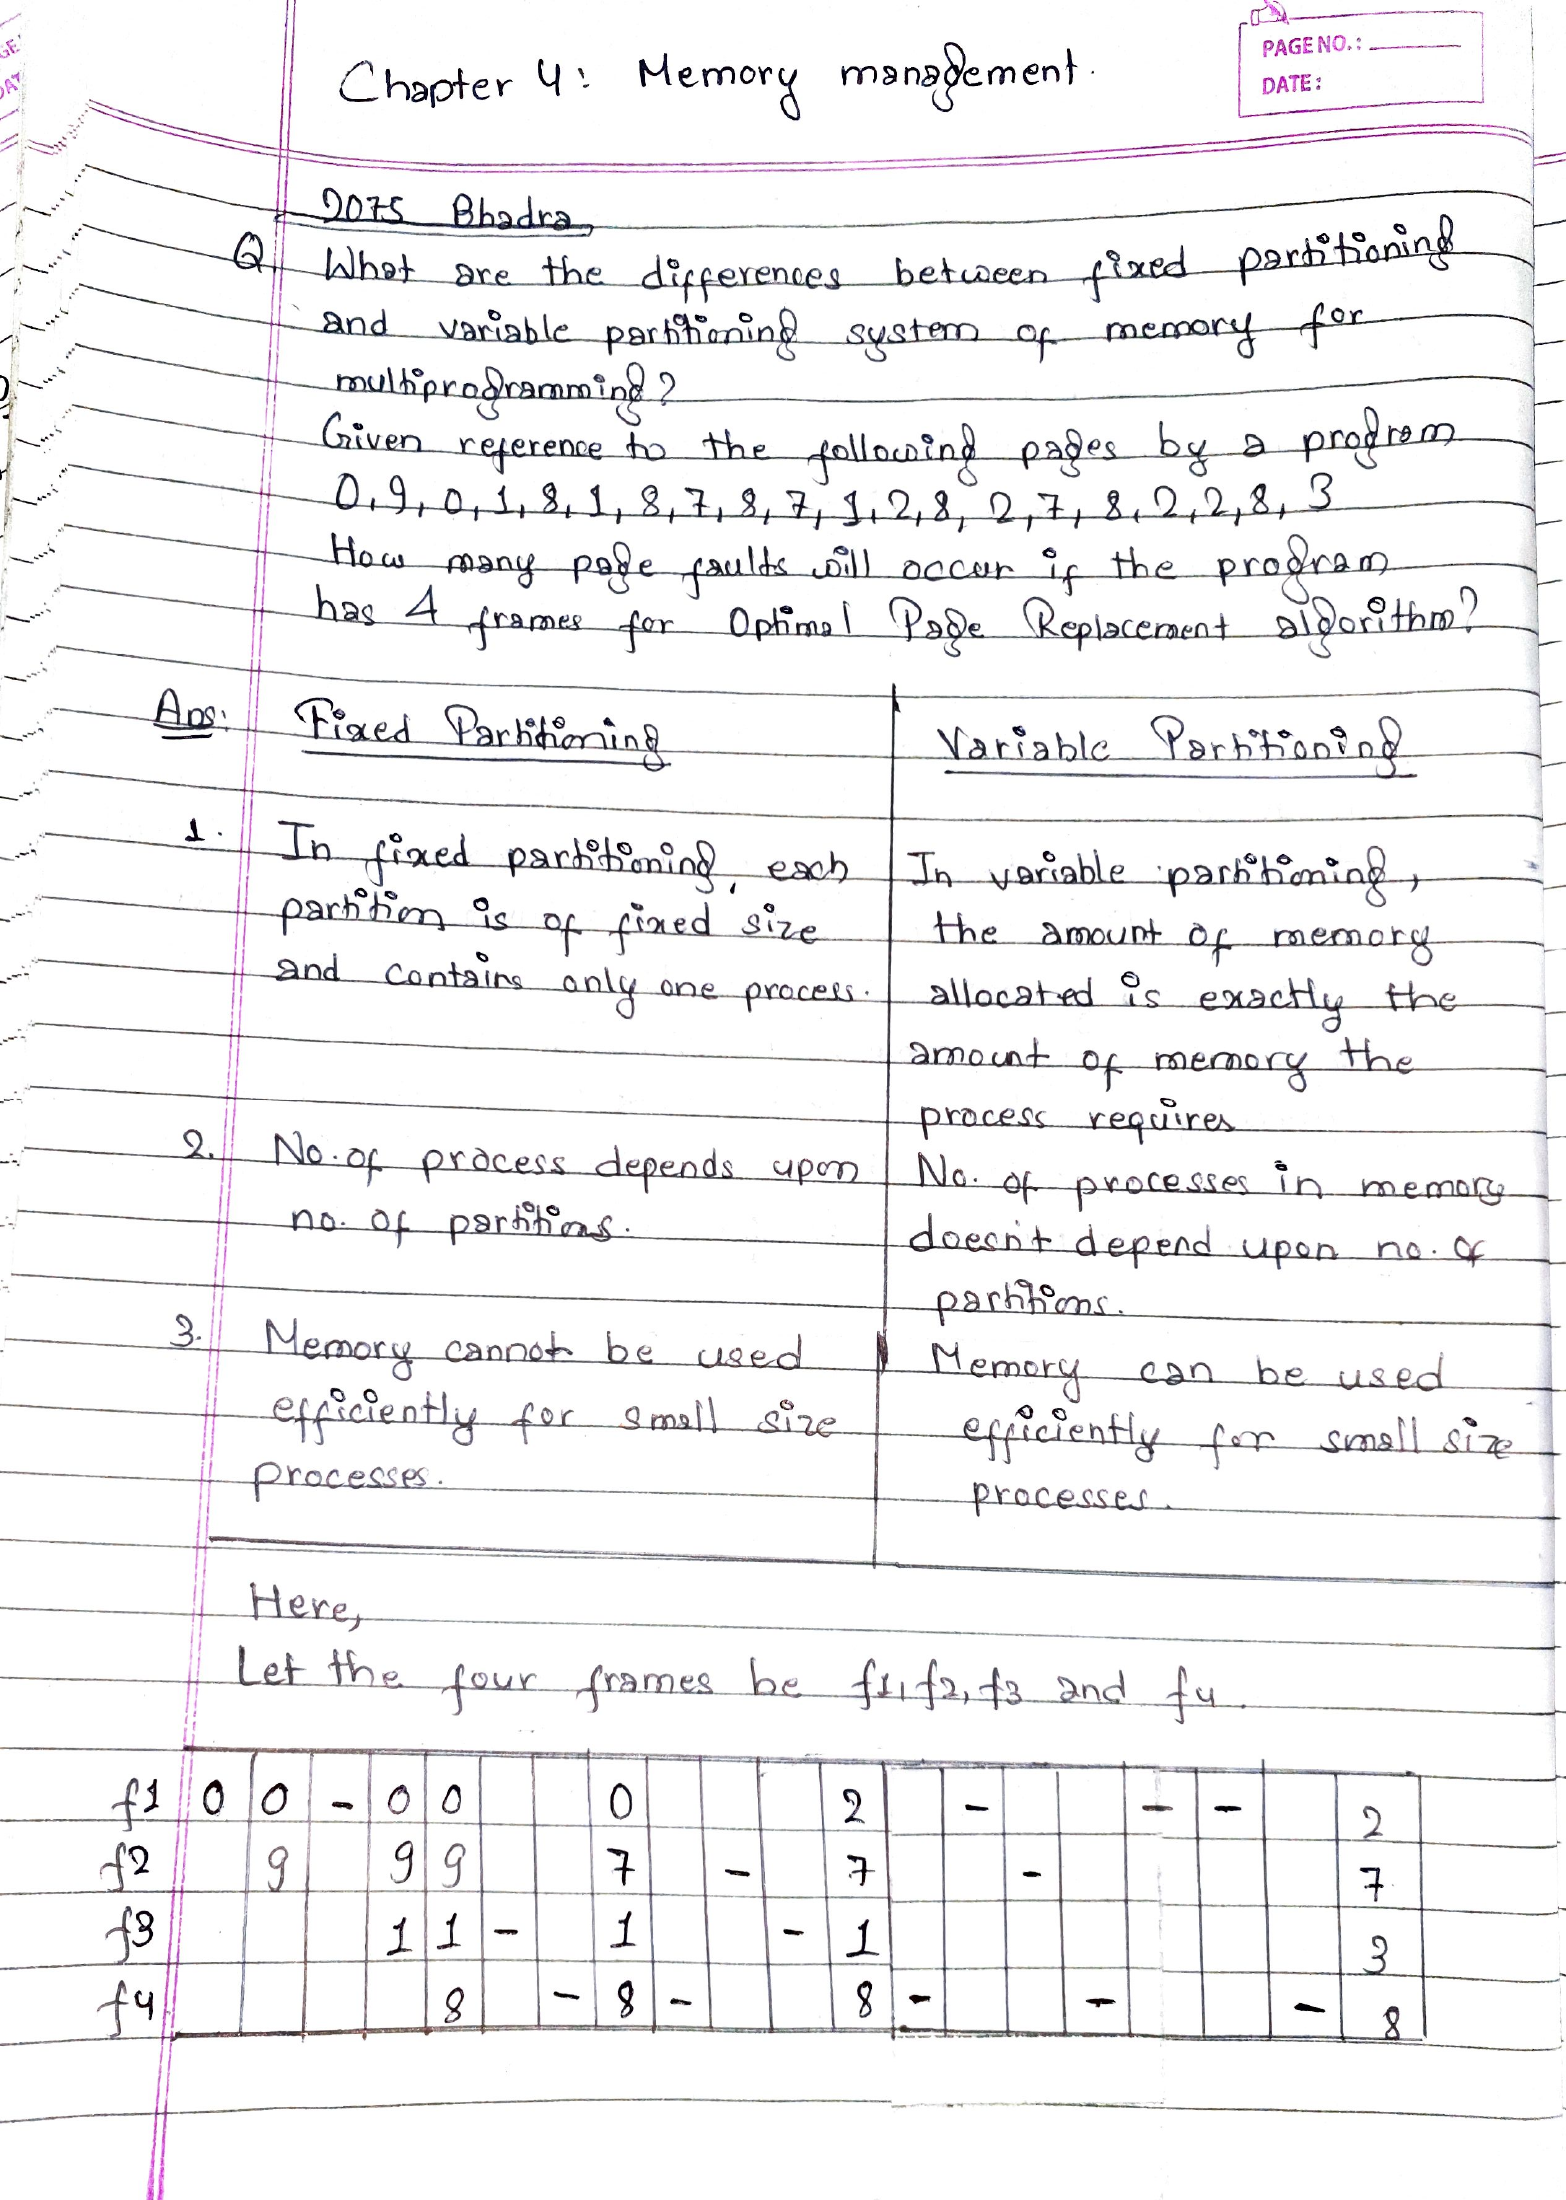 Chapter 4: Memory management.
PAGE NO.:
DATE:
2075 Bhadra
Q. What are the differences between fixed partitioning
and variable partitioning system of memory for
multiprogramming?
Given reference to the following pages by a program
0,9,0,1,8,1,8,7,8,7,1,2,8,2,7,8,2,2,8,3
How many page faults will occur if the program
has 4 frames for Optimal Page Replacement algorithm?
Ans: Fixed Partitioning
Variable Partitioning
1. In fixed partitioning, each
partition is of fixed size
and contains only one process.
In variable partitioning,
the amount of memory
allocated is exactly the
amount of memory the
process requires
2. No. of process depends upon
no. of partitions.
No. of processes in memory
doesn't depend upon no. of
partitions.
3. Memory cannot be used
efficiently for small size
processes.
Memory can be used
efficiently for small size
processes.
Here,
Let the four frames be f1, f2, f3 and f4.
f1 0 0 - 0 0 0 2 - - - 2
f2 9 9 9 7 - 7 - 7
f3 1 1 - 1 - 1 3
f4 8 - 8 - 8 - - - 8